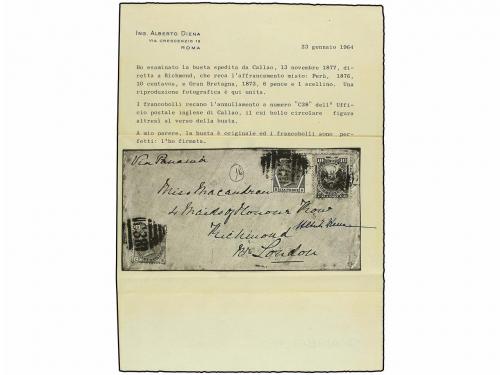 ING. ALBERTO DIENA
VIA CRESCENZIO 19
ROMA
23 gennaio 1964
Ho esaminato la busta spedita da Callao, 13 novembre 1877, di-
retta a Richmond, che reca l'affrancamento misto: Perù, 1876,
10 centavos, e Gran Bretagna, 1873, 6 pence e 1 scellino. Una
riproduzione fotografica è qui unita.
I francobolli recano l'annullamento a numero "C38" dell' Uffi-
cio postale inglese di Callao, il cui bollo circolare figura
altresì al verso della busta.
A mio parere, la busta è originale ed i francobolli sono per-
fetti: l'ho firmata.
Via Panamá
Miss Macandrew
4 Maids of Honour Row
Richmond
London
C38